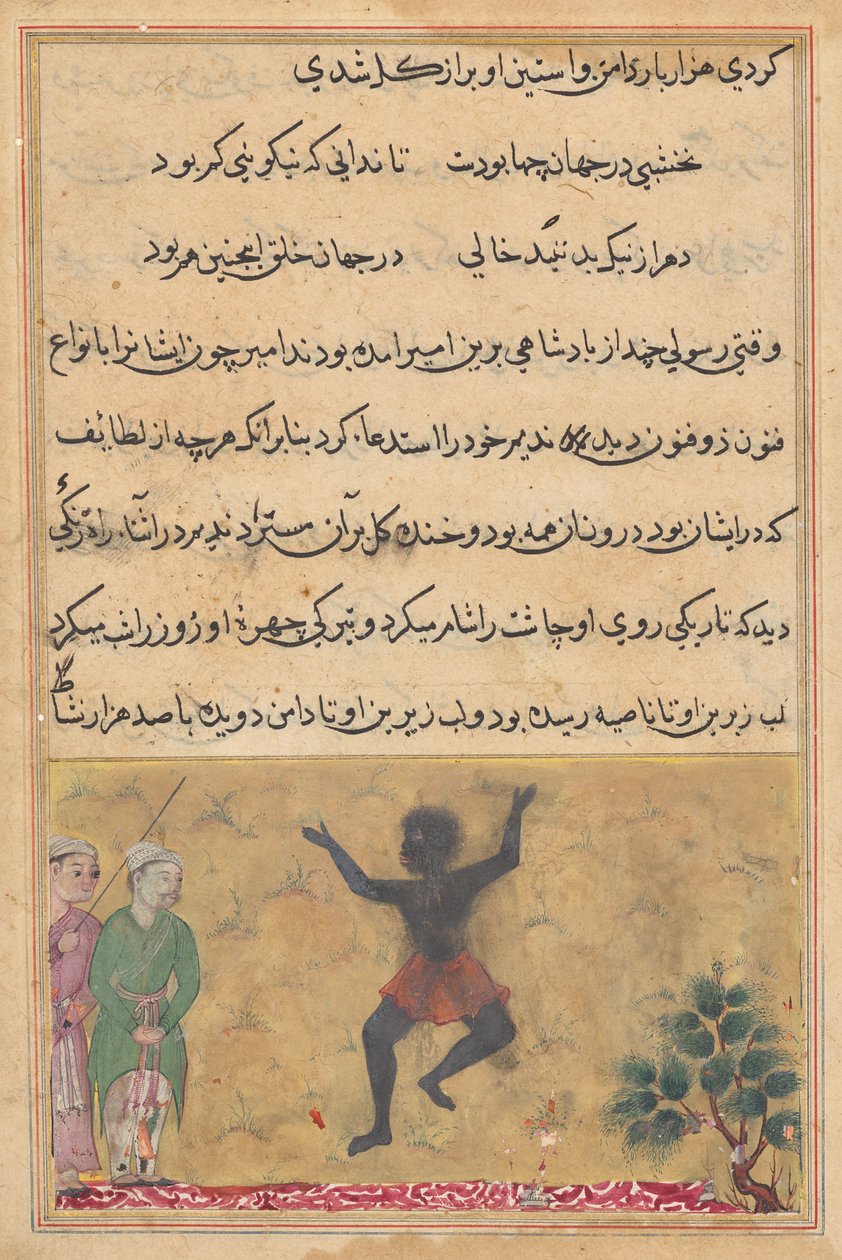 کردي هزار بار دامن و استین او براز کل شدي
نخشبي در جهان چها بودست تا نداني که نیکویي کم بود
دهر از نیک بد نیند خالي در جهان خلق اینجنین هم بود
وقتي رسولي چند از بادشاهي برین امیر امده بودند امیر چون ایشانرا بانواع
فنون ذو فنون دید ندیم خود را استدعاء کرد بنابرانکه هرچه از لطائف
که در ایشان بود در ونان همه بود و خنده کل برآن مستزاد ندیم در اثناء راه زنکي
دید که تاریکي روي او چاشت را شام میکرد و تیرکي چهرهٔ او روز را شب میکرد
لب زبرین او تا ناصیه رسیده بود و لب زیرین او تا دامن دویده با صد هزار نشاط